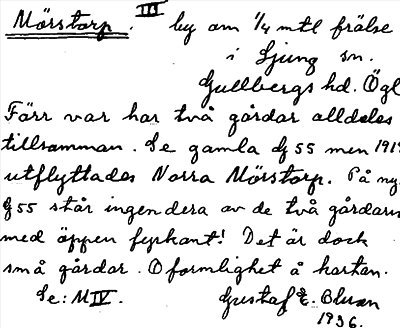 Mörstorp. III by om 1/4 mtl frälse
i Ljung sn.
Gullbergs hd. Ögl
Förr var här två gårdar alldeles
tillsamman. Se gamla G 55 men 1919
utflyttades Norra Mörstorp. På ny
G 55 står ingendera av de två gårdarn
med öppen fyrkant! Det är dock
små gårdar. Oformlighet å kartan.
Se: M IV. Gustaf E. Bluan
1936.